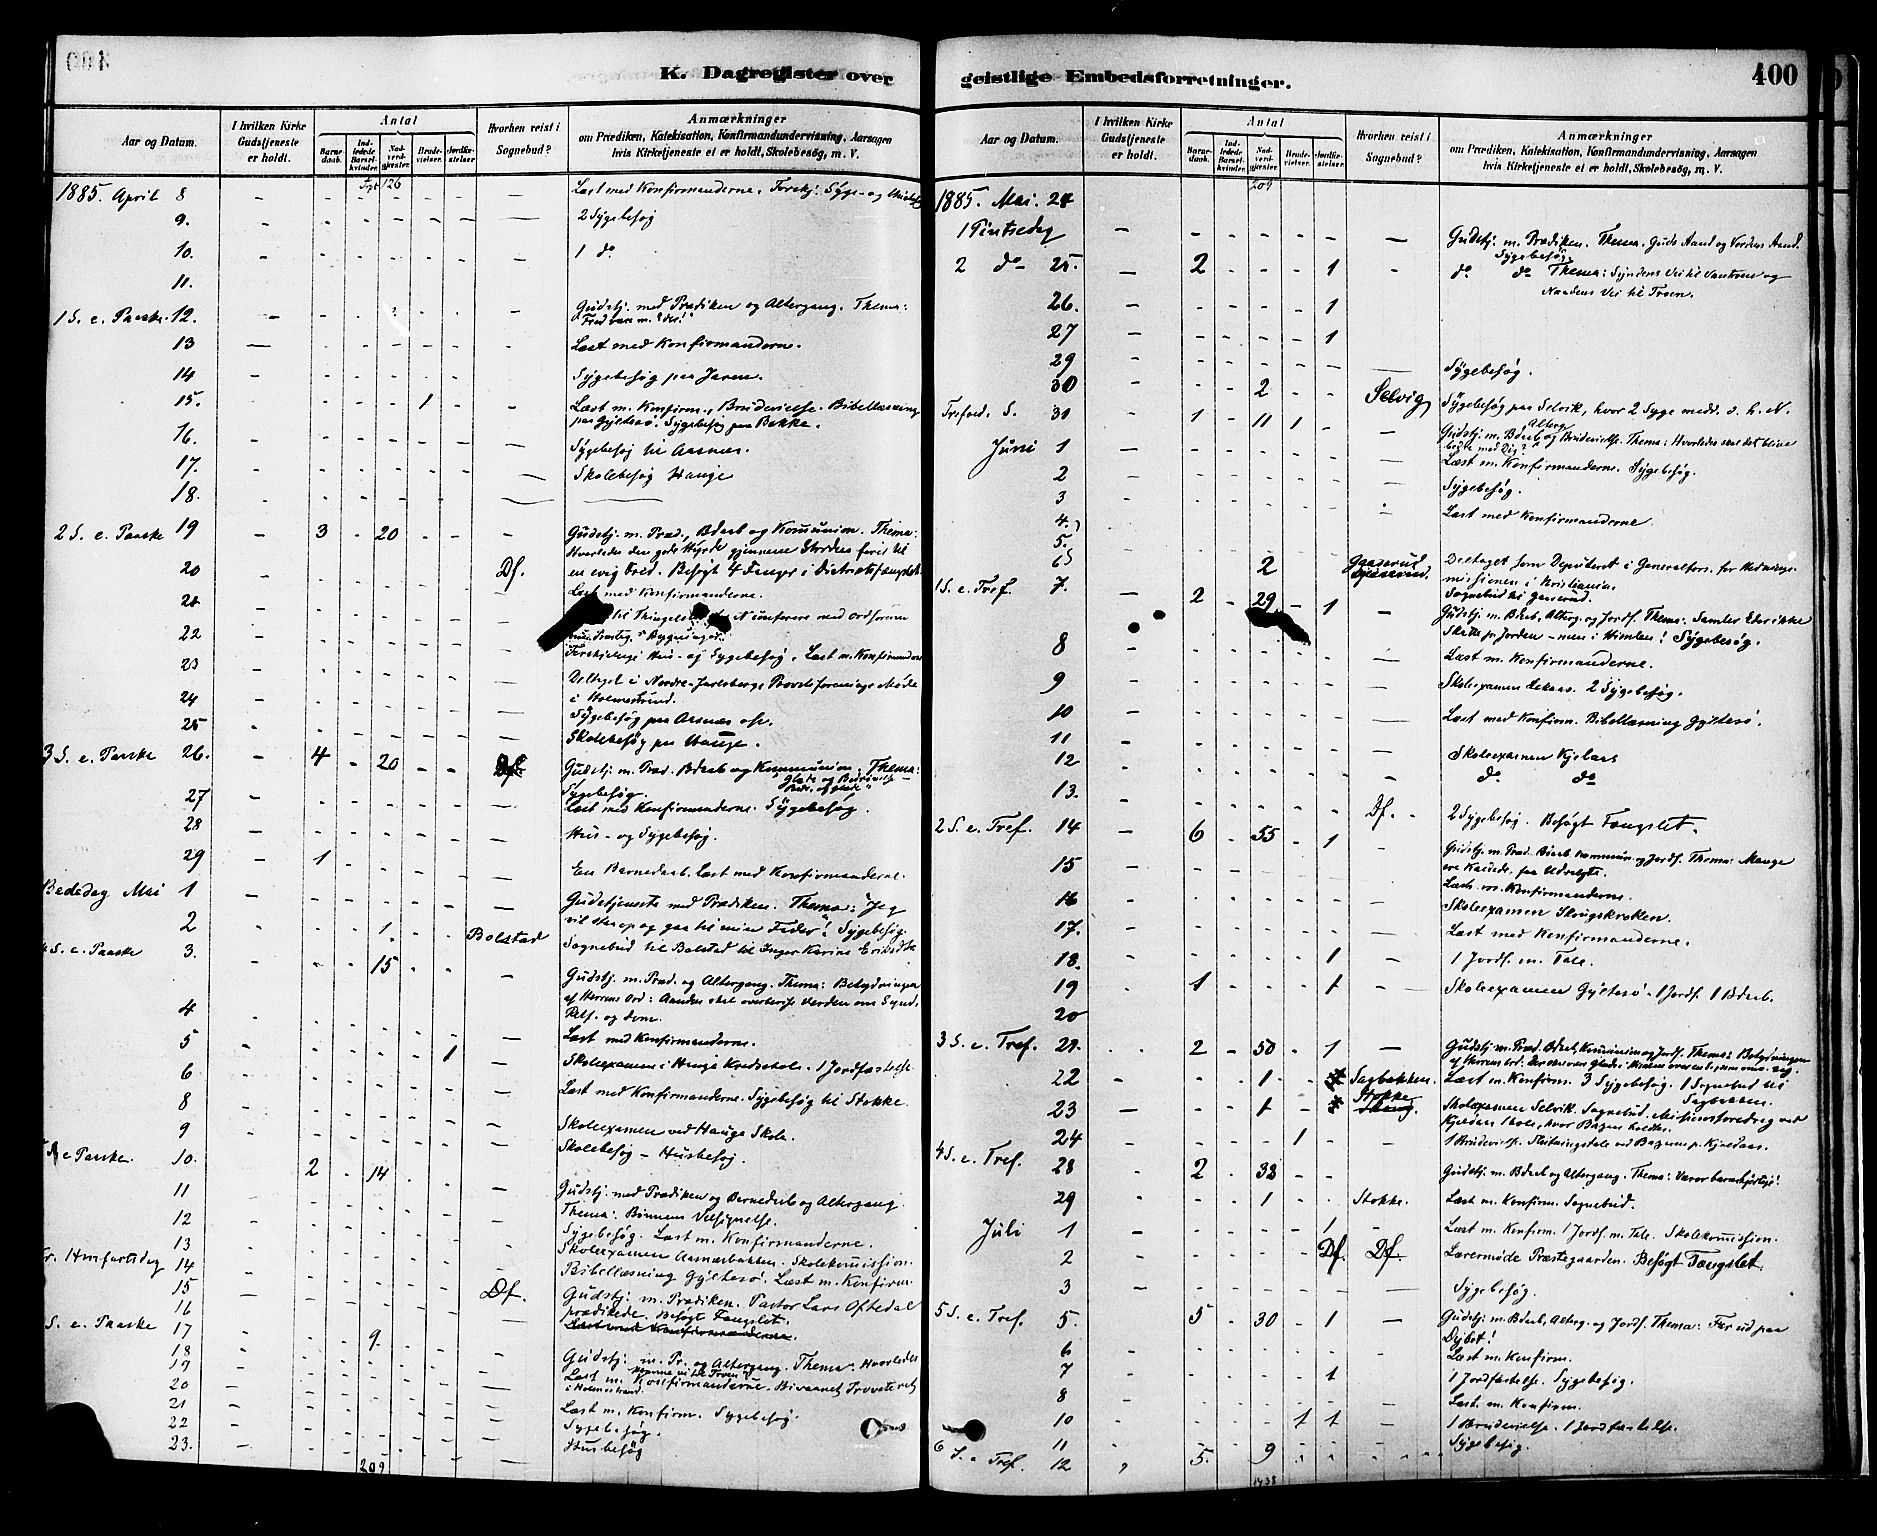 K. Dagregister over
geistlige Embedsforretninger.
400
Aar og Datum.
I hvilken Kirke Gudstjeneste er holdt.
Antal
Barnedaab.
Indledede Barselkvinder.
Nadverdgjester.
Brudevielser.
Jordfæstelser.
Hvorhen reist i Sognebud?
Anmærkninger
om Prædiken, Katekisation, Konfirmandundervisning, Aarsagen
hvis Kirketjeneste ei er holdt, Skolebesøg, m. V.
126
1885. April 8 Læst med Konfirmanderne. Forskj. Syge- og
9. 2 Sygebesøg
10. 1 do
11.
1 S. e. Paaske 12. Gudstj. med Prædiken og Altergang. Thema:
13 Læst med Konfirmanderne.
14 Sygebesøg paa Jaren.
15. 1 Læst m. Konfirm., Brudevielse. Bibellæsning
paa Gyltesø. Sygebesøg paa Bakke.
16. Sygebesøg til Aasnæs.
17. Skolebesøg Hauge
18.
2 S. e. Paaske 19 3 20 Gudstj. m. Præd., Bdaab og Komunion. Thema:
Hvorledes den gode Hyrde gjennem Striden fører til
20 Df. en evig Fred. Besøgt 4 Fanger i Distriktsfængslet
Læst med Konfirmanderne.
21
22 Læst m. Konfirmanderne
23 Deltaget i Nordre-Jarlsbergs
24 i Holmestrand.
Sygebesøg paa Aasnæs
25 Skolebesøg paa Hauge.
3 S. e. Paaske 26. 4 20 Df Gudstj. m. Præd. Bdaab og Kommunion. Thema:
Sygebesøg.
27 Læst med Konfirmanderne. Sygebesøg.
28 Hus- og Sygebesøg.
29 1 En Barnedaab. Læst med Konfirmanderne.
Bededag Mai 1 Gudstjeneste med Prædiken. Thema: "Jeg
vil staa op og gaa til min Fader". Sygebesøg.
2 1. Bolstad Sognebud til Bolstad til Inger Karine
4 S. e. Paaske 3. 15 Gudstj. m. Præd. og Altergang. Thema: Betydningen
af Herrens Ord: Aanden skal overbevise Verden om Synd,
Retf. og dom.
4 Læst med Konfirmanderne.
5 1 Skoleexamen i Hauge Kredsskole. 1 Jordfæstelse
6 Læst med Konfirmanderne. Sygebesøg til Stokke.
8 Skoleexamen ved Hauge Skole.
9 Skolebesøg - Husbesøg.
e Paaske. 10. 2 14 Gudstj. med Prædiken og Barnedaab og Altergang.
Thema: Bønnens Velsignelse.
11 Sygebesøg. Læst m. Konfirmanderne.
12 Skoleexamen Aasnæsbakken. Skolekomission.
13 Bibellæsning Gyltesø. Læst m. Konfirm
Kr. Himfartsdag 14 Gudstj. m. Prædiken. Pastor Lars Oftedal
15 Df. prædikede. Besøgt Fængslet.
16 Læst med Konfirmanderne.
S. e. Paaske 17 9. Gudstj. m. Pr. og Altergang. Thema: Hvorledes
18 Læst m. Konfirmanderne.
19 i Holmestrand.
20
21 Læst m. Konfirm. Sygebesøg.
22 Sygebesøg.
23. Husbesøg
209
209
1885. Mai. 24
1 Pintsedag Gudstj. m. Prædiken. Thema. Guds Aand og Verdens Aand.
Sygebesøg.
2 do 25. 2 1 do do Thema: Syndens Vei til Vantroen og
Naadens Vei til Troen.
26. 1
27 1
29 Sygebesøg.
30 2 Selvig Sygebesøg paa Selvik, hvor 2 Syge medd. d. h. N.
Trefold. S. 31 1 11 1 Gudstj. m. Bdaab og Alterg Brudevielse. Thema: Hvorledes skal det blive
bedre med Dig?
Juni 1 Læst m. Konfirmanderne. Sygebesøg.
2 Sygebesøg.
3 Læst med Konfirmanderne.
4.
5.
6 2 Gaaserud Deltaget som Deputeret i Generalfors. for Hedninge-
missionen i Kristiania.
Sognebud til Gaaserud.
1 S. e. Tref. 7. 2 29 1 Gudstj. m. Bdaab, Alterg. og Jordf. Thema: Samler Eder ikke
Skatte pr Jorden - men i Himlen! Sygebesøg.
8 Læst m. Konfirmanderne.
9 Skoleexamen. 2 Sygebesøg.
10 Læst med Konfirm. Bibellæsning Gyltesø.
11 Skoleexamen Kjelaas
12 do do
13. Df. 2 Sygebesøg. Besøgt Fængslet.
2 S. e. Tref. 14 6 55 1 Gudstj. m. Præd. Bdaab Kommun. og Jordf. Thema: Mange
ere Kaldede, faa Udvalgte.
15 Læst m. Konfirmanderne.
16 Skoleexamen Skougskroken.
17. Læst med Konfirmanderne.
18. 1 1 Jordf. m. Tale.
19 1 1 Skoleexamen Gyltesø. 1 Jordf. 1 Bdaab.
20
3 S. e. Tref. 21. 2 50 1 Gudstj. m. Præd. Bdaab, Komunion og Jordf. Thema: Betydningen
af Herrens Ord:
22 1 Sagbakken. Læst m. Konfirm. 3 Sygebesøg. 1 Sognebud til
Sagbakken.
23 1 Stokke Skoug. Skoleexamen Selvik. Sognebud. Missionsforedrag ved
Kjeldaas Skole, hvor Bazaren holdtes.
24 1 1 Brudevielse. Slutningstale ved Bazaren p. Kjeldaas.
4 S. e. Tref. 28 2 38 Gudstj. m. Bdaab og Altergang. Thema: Værer barmhjertige!
29 1 Stokke. Læst m. Konfirm. Sognebud.
Juli 1 1 Læst m. Konfirm. 1 Jordf. m. Tale. Skolekomission.
2 Df. Df. Læremøde Præstegaarden. Besøgt Fængslet.
3 Sygebesøg.
5 S. e. Tref. 5. 5 30 1 Gudstj. m. Bdaab, Alterg. og Jordf. Thema: Far ud paa
Dybet!
6 Læst m. Konfirm.
7 1 1 Jordfæstelse. Sygebesøg.
8 Læst. m. Konfirm.
10 1 1 1 Brudevielse. 1 Jordfæstelse.
11 Sygebesøg.
6 S. e. Tref. 12 5. 9
1438